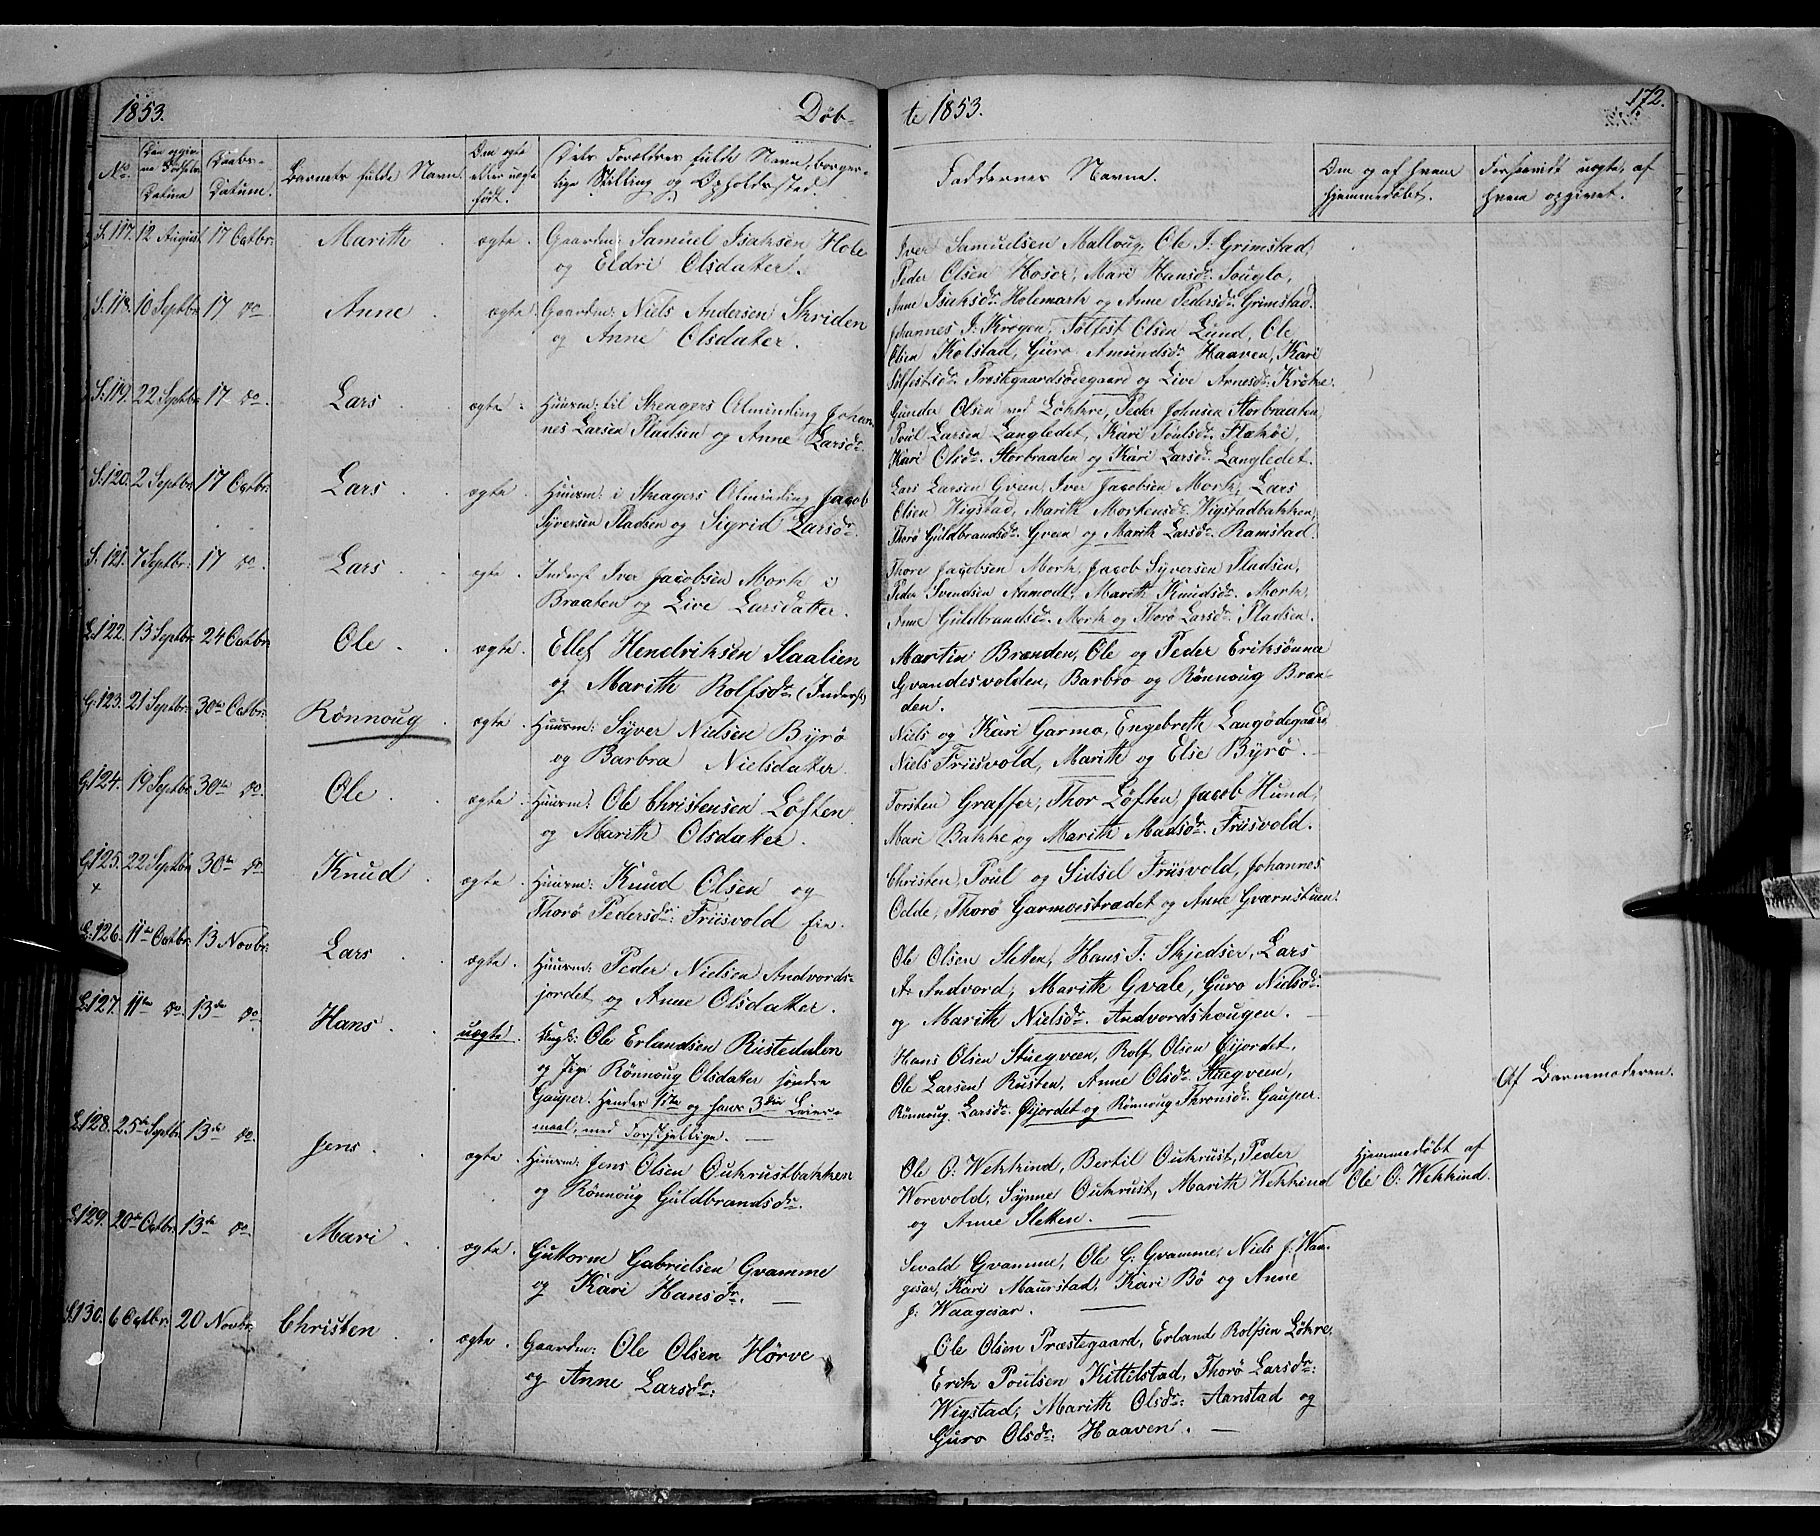 1853. Døb-
te 1853. 172.
No. Den opgivne Fødsels Datum Daabs-Datum. Barnets fulde Navn. Om ægte eller uægte født. Dets Forældres fulde Navn, borgerlige Stilling og Opholdssted.
Faddernes Navne. Om og af hvem hjemmedøbt. Forsaavidt uægte, af hvem opgivet.
S. 117. 12 August 17 Octbr. Marith ægte. Gaardm: Samuel Isaksen Hole
og Eldri Olsdatter.
Iver Samuelsen Malloug, Ole J: Grimstad,
Peder Olsen Hoser, Mari Hansdr. Souglo,
Anne Isaksdr. Holemark og Anne Pedersdr. Grimstad.
S. 118. 10 Septbr. 17 do. Anne ægte Gaardm: Niels Andersen Skriden
og Anne Olsdatter.
Johannes J: Krogen, Tolfest Olsen Lund, Ole
Olsen Kolstad, Guro Amundsdr. Haaven, Kari
Solfestsdr. Præstgaardsødegaard og Live Arnesdr. Kröke.
S. 119. 22 Septbr. 17 do. Lars ægte. Huusm: til Skeagers Alminding Johan-
nes Larsen Pladsen og Anne Larsdr.
Gunder Olsen ved Løkkre, Peder Johnsen Storbraaten,
Poul Larsen Langledet, Kari Poulsdr. Flaköi,
Kari Olsdr. Storbraaten og Kari Larsdr. Langledet.
S. 120. 2 Septbr. 17 Octbr. Lars ægte. Huusm: i Skeagers Alminding Jacob
Syversen Pladsen og Sigrid Larsdr.
Lars Larsen Gveen, Iver Jacobsen Mork, Lars
Olsen Wigstad, Marith Mortensdr. Wigstadbakken,
Thorø Guldbrandsdr. Gveen og Marith Larsdr. Ramstad.
S. 121. 7 Septbr. 17 do. Lars ægte. Inderst Iver Jacobsen Mork i
Braaten og Live Larsdatter.
Thore Jacobsen Mork, Jacob Syversen Pladsen,
Peder Svendsen Aamodt, Marith Knudsdr. Mork,
Anne Guldbrandsdr. Mork og Thorø Larsdr. Pladsen.
L. 122. 13 Septbr. 24 Octbr. Ole ægte. Ellef Hendriksen Slaalien
og Marith Rolfsdr. (Inderst)
Martin Brænden, Ole og Peder Eriksønner
Gvandesvolden, Barbro og Rønnoug Bræn-
den.
G. 123. 21 Septbr. 30te Octbr. Rønnoug ægte. Huusm: Syver Nielsen Byrø
og Barbra Nielsdatter.
Niels og Kari Garmo, Engebreth Langødegaard
Niels Friisvold, Marith og Else Byrø.
G. 124. 19 Septbr. 30te do. Ole ægte. Huusm: Ole Christensen Løften
og Marith Olsdatter.
Torsten Graffer, Thor Løften, Jacob Hund,
Mari Bakke og Marith Madsdr. Friisvold.
G. 125. 22 Septbr. 30te do. Knud ægte. Huusm: Knud Olsen og
Thorø Pedersdr: Friisvold eie.
Christen, Poul og Sidsel Friisvold, Johannes
Odde, Thorø Garmoestrædet og Anne Gvernstuen.
L. 126. 11te Octbr. 13 Novbr. Lars ægte. Huusm: Peder Nielsen Andvords-
jordet og Anne Olsdatter.
Ole Olsen Sletten, Hans T: Skjedser, Lars
A: Andvord, Marith Gvale, Guro Nielsdr.
og Marith Nielsdr. Andvordshougen.
L. 127. 11te do. 13de do. Hans uægte. Ungk: Ole Erlandsen Rustedalen
og Pige Rønnoug Olsdatter søndre
Gaupar. hendes 1ste og hans 3die Leier-
maal, med Forskjellige.
Hans Olsen Stuegveen, Rolf Olsen Øijordet,
Ole Larsen Rusten, Anne Olsdr. Stuegveen,
Rønnoug Larsdr. Øijordet og Rønnoug Thronsdr. Gauper.
Af Barnemoderen.
L. 128. 25de Septbr. 13de do. Jens ægte. Huusm: Jens Olsen Oukrustbakken
og Rønnoug Guldbrandsdr.
Ole O: Wekkind, Bertil Oukrust, Peder
Worevold, Synne Oukrust, Marith Wekkind
og Anne Sletten.
Hjemmedøbt af
Ole O. Wekkind.
L. 129. 20de Octbr. 13de do. Mari ægte. Guttorm Gabrielsen Gvamme
og Kari Hansdr.
Sevald Gvamme, Ole G: Gvamme, Niels J: Waa-
gesar, Kari Maurstad, Kari Bø og Anne
J: Waagesar.
S. 130. 6 Octbr. 20 Novbr. Christen ægte. Gaardm: Ole Olsen Hørve
og Anne Larsdr:
Ole Olsen Præstegaard, Erland Rolfsen Løkre,
Erik Poulsen Kittelstad, Thorø Larsdr:
Wigstad, Marith Olsdr: Aanstad og
Guro Olsdr: Haaven.